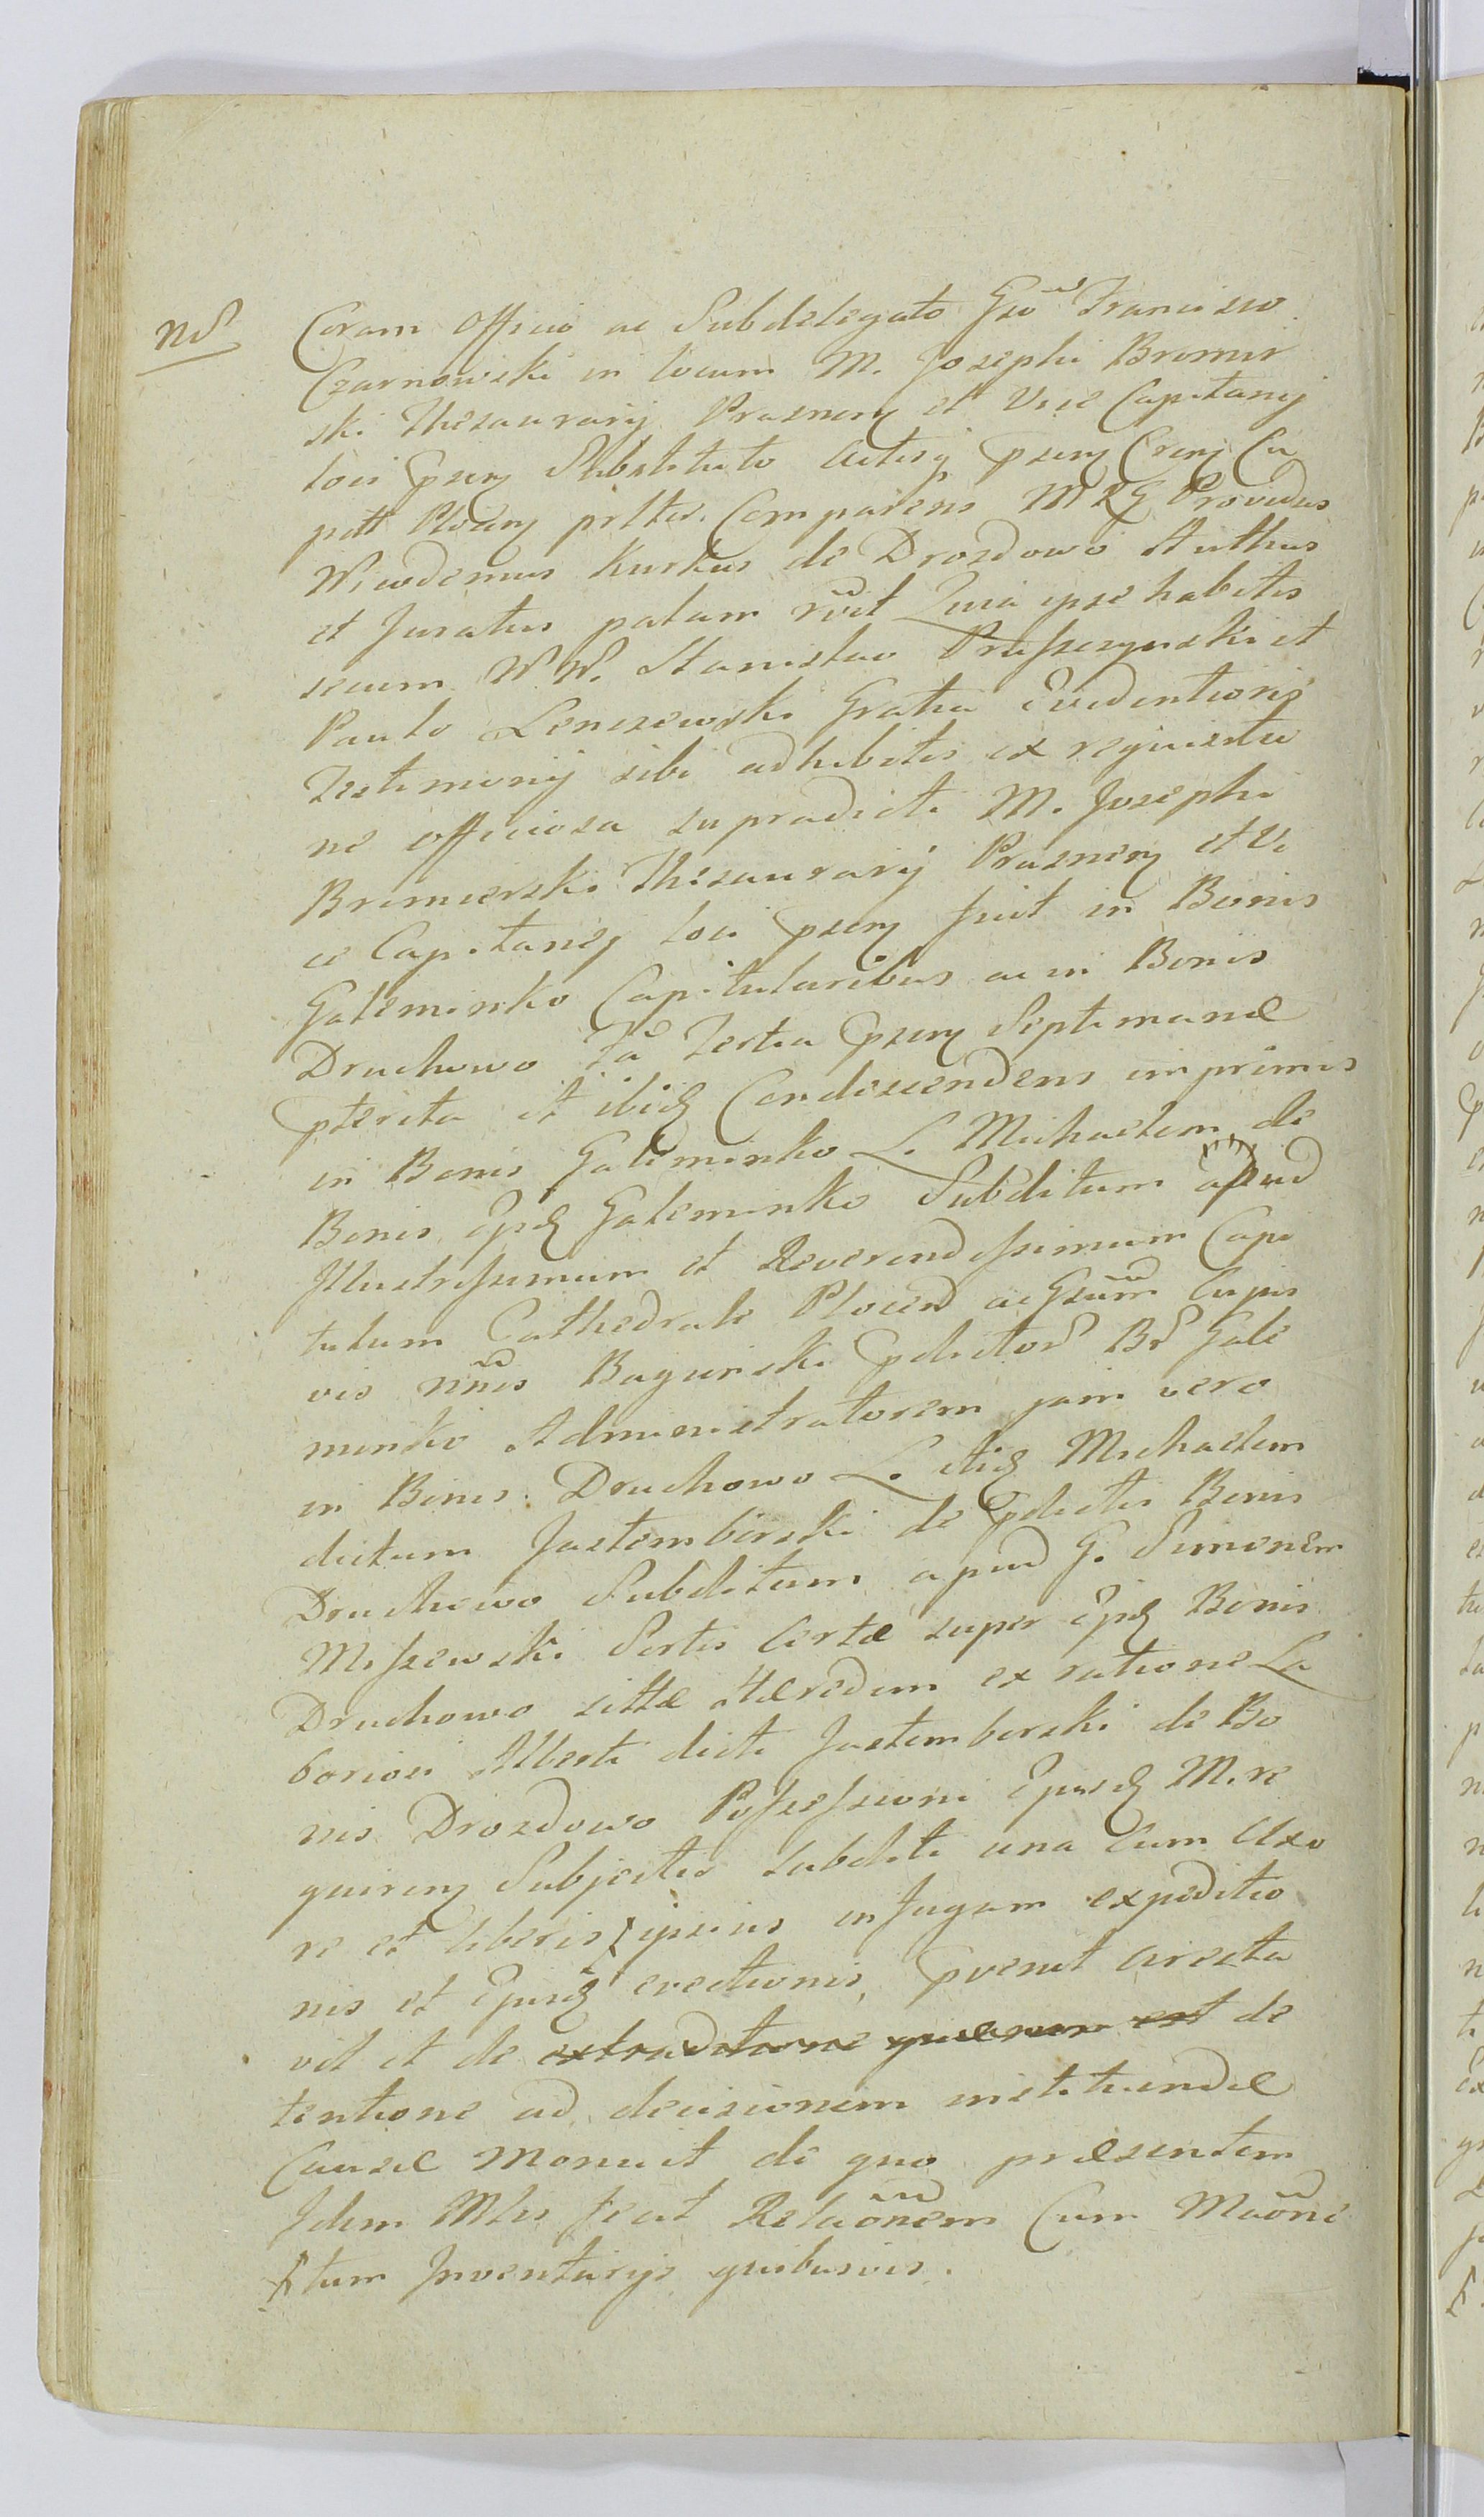 Nd Coram Officio ac Subdelegato Gso Francisco
Czarnowski in locum M. Josephi Bromir
ski Thesaurarij Prasnen et Vice Capitanej
loci psen Substituto Actisq psen Cren Ca
pitt Plocen prlter Comparens MRG Providus
Nicodemus Kurkus de Drozdowo Authus
et Juratus palam rvit Quia ipse habitis
secum N. N. Stanislao Prusszynski et
Paulo Lenczewski Gratia Evidentioris
Testimonij sibi adhibitis ex requisitio
ne officiosa supradicti M. Josephi
Bromierski Thesaurarij Prasnen et Vi
ce Capitanej loci psen fuit in Bonis
Goleminko Capitularibus ac in Bonis
Druchowo Fa Tertia psen Septimanæ
pterita et ibid Condescendens imprimis
in Bonis Goleminko L. Michaelem de
Bonis Ejsd Goleminko Subditum apud
Illustrissimum et Reverendissimum Capi
tulum Cathedrale Plocen ac Gsum Cujus
vis nnis Bagieński pdictor Br Gole
minko Administratorem jam vero
in Bonis Druchowo L. itid Michaelem
dictum Jastembirski de pdictis Bonis
Druchowo Subditum apud G. Simonem
Miszewski Sortis Certæ super Ejsd Bonis
Druchowo sittæ Hæredem ex ratione La
boriosi Alberti dicti Jastemberski de Bo
nis Drozdowo Possessioni Ejusd M. re
quiren Subjectis subditi una Cum Uxo
re et liberis ipsius in fugam expeditio
nis et Ejusd evectionis, pvenit aresta
vit et de extraditione quænam est de
tentione ad decisionem instituendæ
Causæ Monuit de quo præsentem
Idem Mlis fecit Relaonem Cum Maone
tum Inventarijs quibusvis.